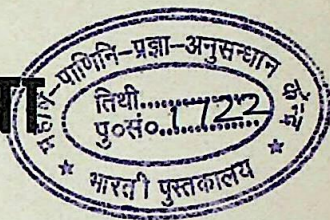 महर्षि-पाणिनि-प्रज्ञा-अनुसन्धान केन्द्र
तिथी..............
पु०सं०..1722..
* भारती पुस्तकालय *